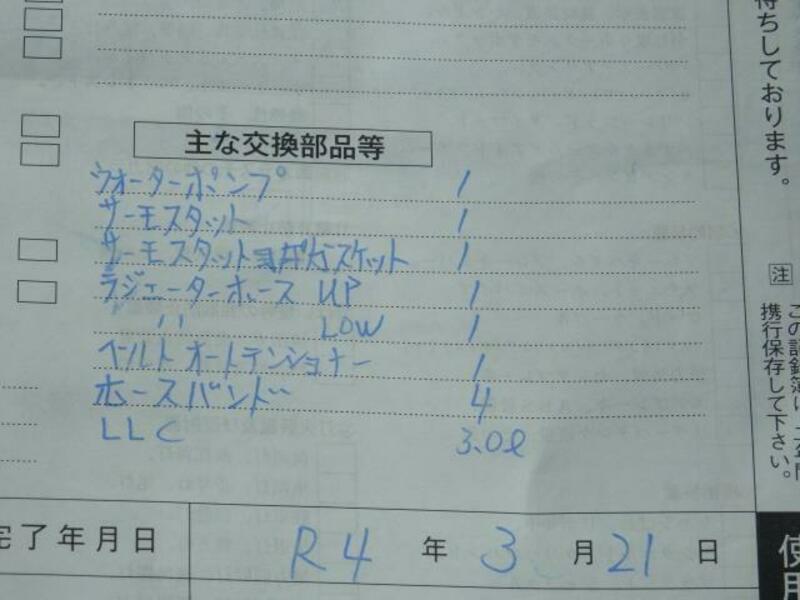 待ちしております。
主な交換部品等
ウォーターポンプ 1
サーモスタット 1
サーモスタット ガスケット 1
ラジエーターホース UP 1
〃 LOW 1
ベルトオートテンショナー 1
ホースバンド 4
LLC 3.0ℓ
注
携行保存して下さい。
完了年月日 R4 年 3 月 21 日
使用